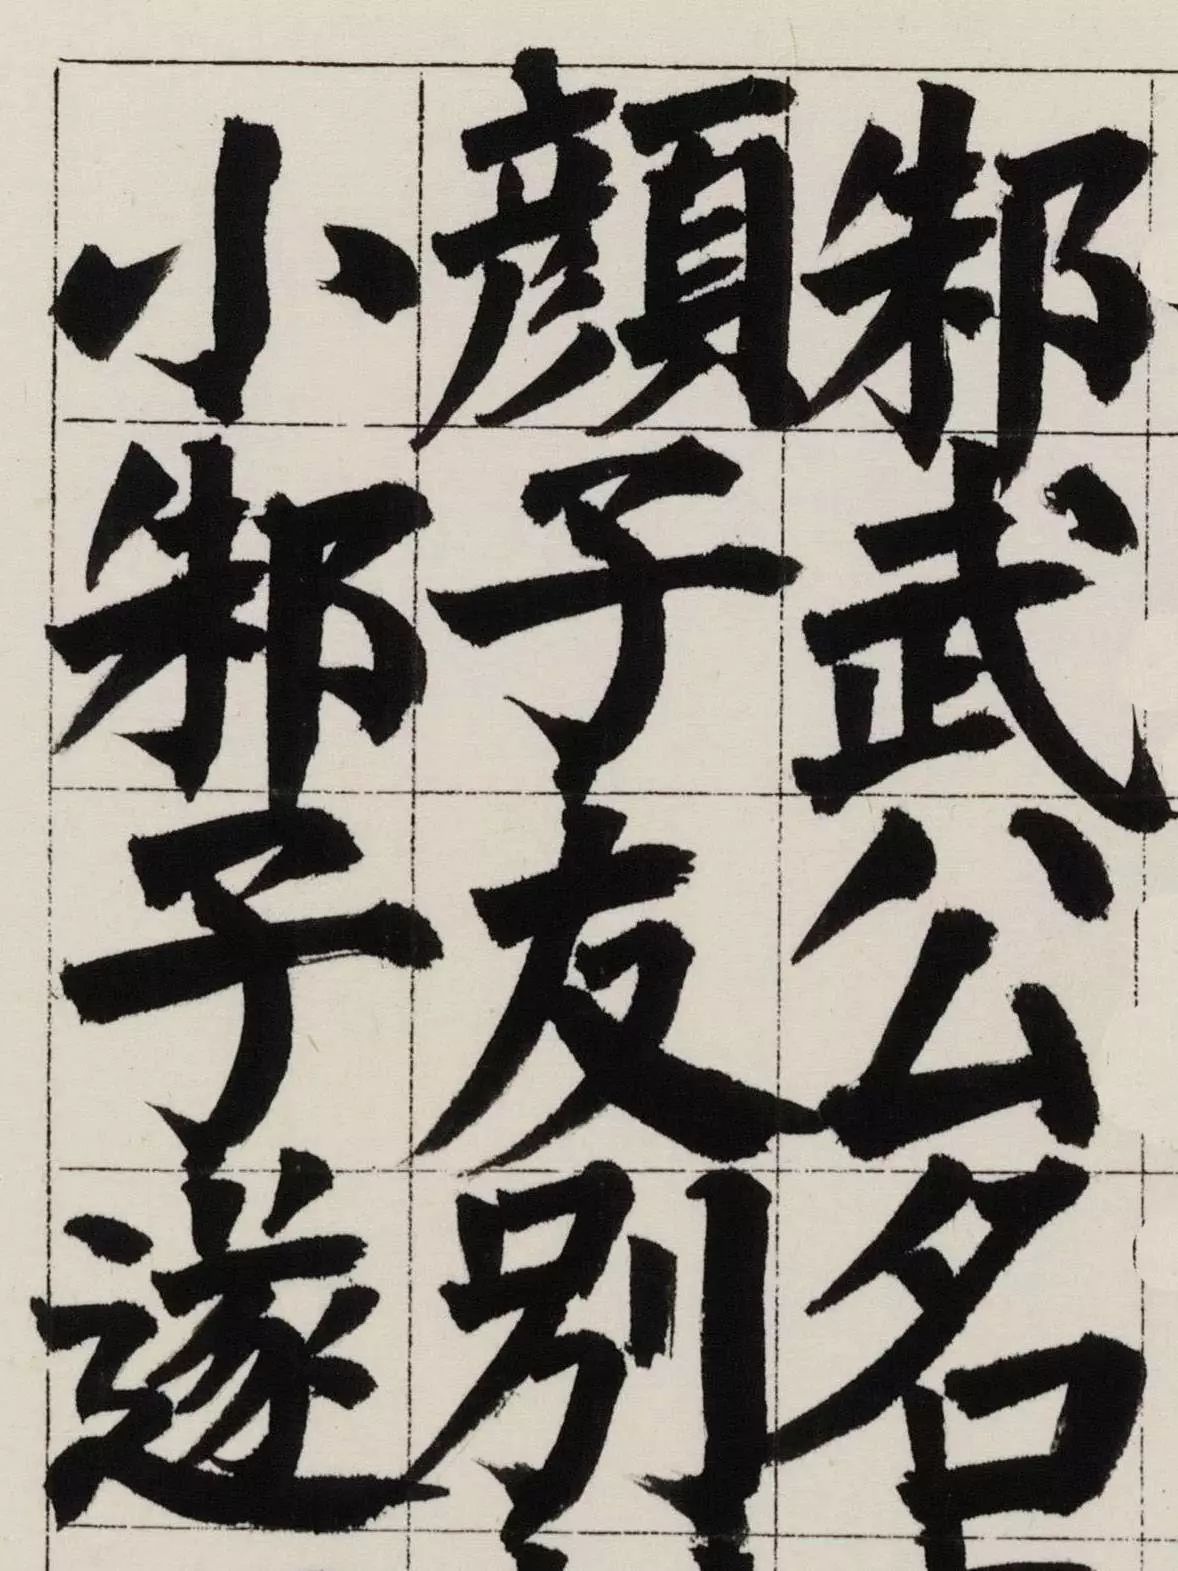 邾武公名
顏子友別
小邾子遂